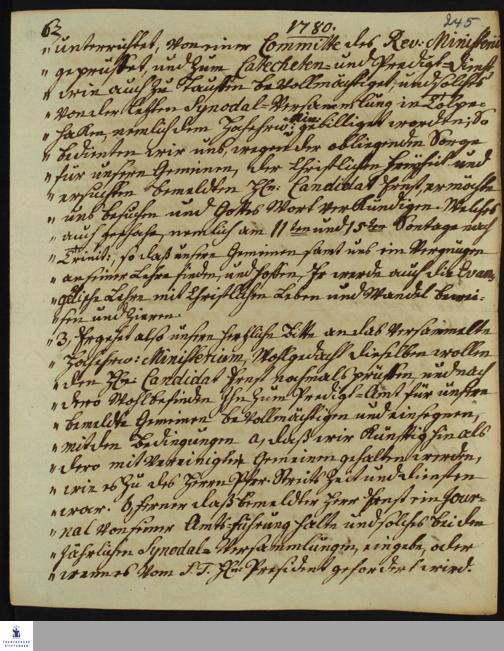 62. 1780. 245
" unterrichtet, von einer Committe des Rev: Ministerii
" geprüffet und zum Catecheten- und Predigt-Dienst
" wie auch zu Tauffen bevollmächtiget, und solches
" von der letzten Synodal-Versammlung in Tolpe-
" haken, nemlich dem Hochehrw: Min: gebilliget worden; So
" bedienten wir uns, wegen der obliegenden Sorge
" für unsere Gemeinen, der Christlichen Freyheit und
" ersuchten bemeldten Hrn. Candidat Ernst, er möchte
" uns besuchen und Gottes Wort verkündigen. Welches
" auch geschahe, nemlich am 11ten und 15ten Sontage nach
" Trinit:, so daß unsre Gemeinen samt uns ein Vergnügen
" an seiner Lehre finden, und hoffen, Er werde auch die Evan-
" gelische Lehre mit Christlichem Leben und Wandel bewei-
" sen und zieren.
" 3, Ergehet also unsre herzliche Bitte an das Versammelte
" Hochehrw: Ministerium, Wohlgedacht dieselben wollen
" den Hrn. Candidat Ernst nochmals prüffen und nach
" dero Wohlbefinden Ihn zum Predigt-Amt für unsere
" bemeldte Gemeinen bevollmächtigen und einsegnen,
" mit den Bedingungen a, daß wir künftighin als
" dero mit Vereinigten Gemeinen gehalten werden,
" wie es zu des Herrn Pfr. Streits Zeit und Diensten
" war. b, ferner daß bemeldter Herr Ernst ein Jour-
" nal von seiner Amtsführung halte und solches bei den
" Jährlichen Synodal-Versammlungen, eingebe, oder
" wenn es vom S. T. Hrn. President gefordert wird.
FRANCKESCHE
STIFTUNGEN